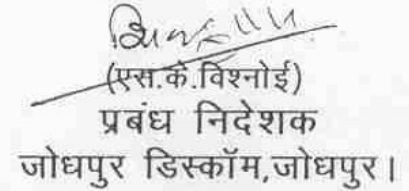 (एस.के.विश्नोई)
प्रबंध निदेशक
जोधपुर डिस्कॉम,जोधपुर।